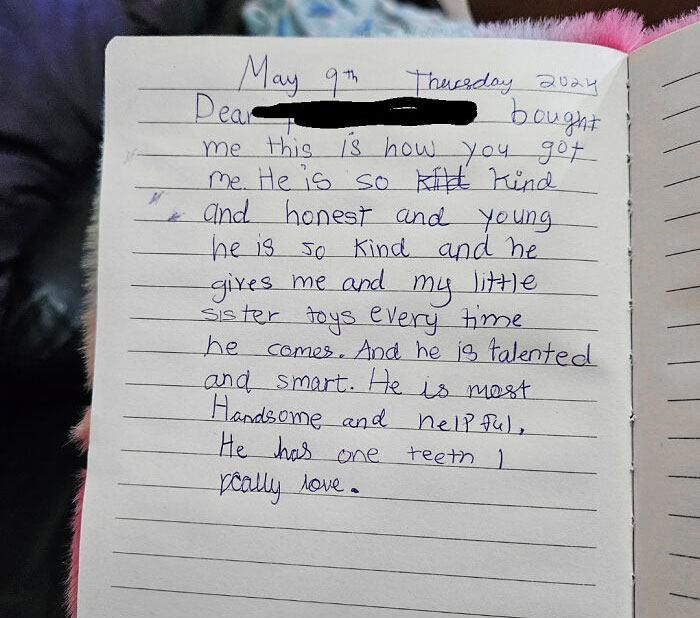 May 9th Thursday 2024
Dear bought
me this is how you got
me. He is so Kind
and honest and young
he is so kind and he
gives me and my little
sister toys every time
he comes. And he is talented
and smart. He is most
Handsome and helpful,
He has one teeth I
really love.